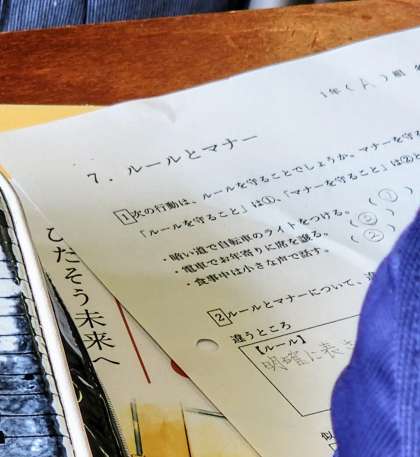 1年(A)組
7. ルールとマナー
1 次の行動は、ルールを守ることでしょうか。マナーを守る
「ルールを守ること」は①、「マナーを守ること」は②
・暗い道で自転車のライトをつける。 (①)
・電車でお年寄りに席を譲る。 (②)
・食事中は小さな声で話す。 (②)
2 ルールとマナーについて、違
違うところ
【ルール】
明確に表さ
似
ひたそう未来へ